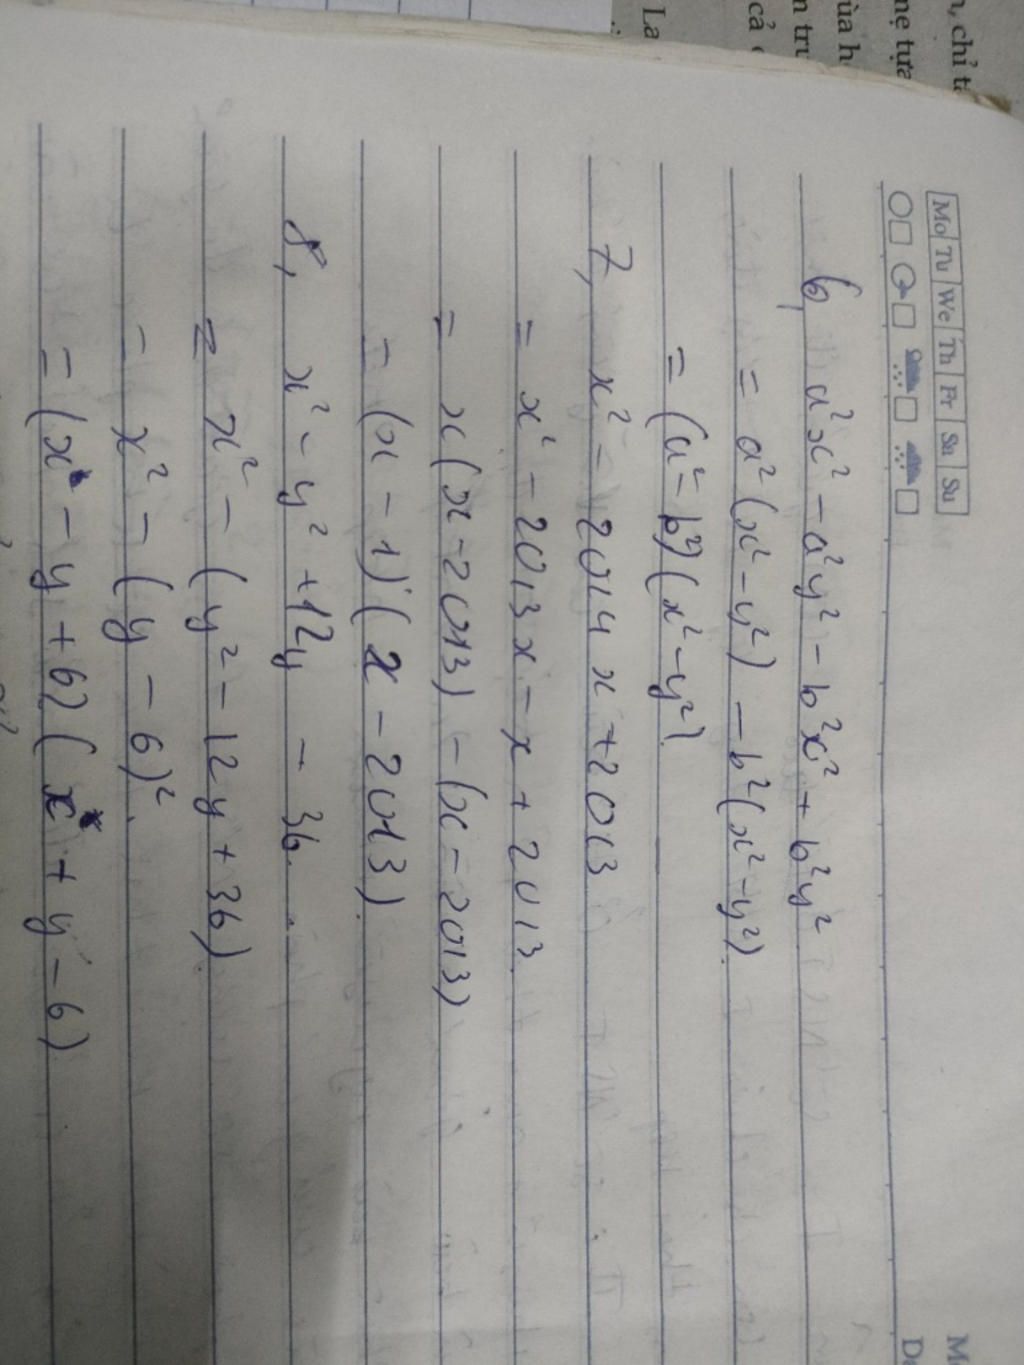 Mo Tu We Th Fr Sa Su
6, a²x² - a²y² - b²x² + b²y²
= a²(x² - y²) - b²(x² - y²).
= (a² - b²)(x² - y²).
7, x² - 2014x + 2013
= x² - 2013x - x + 2013.
= x(x - 2013) - (x - 2013)
= (x - 1)(x - 2013).
8, x² - y² + 12y - 36.
= x² - (y² - 12y + 36).
= x² - (y - 6)².
= (x - y + 6)(x + y - 6)